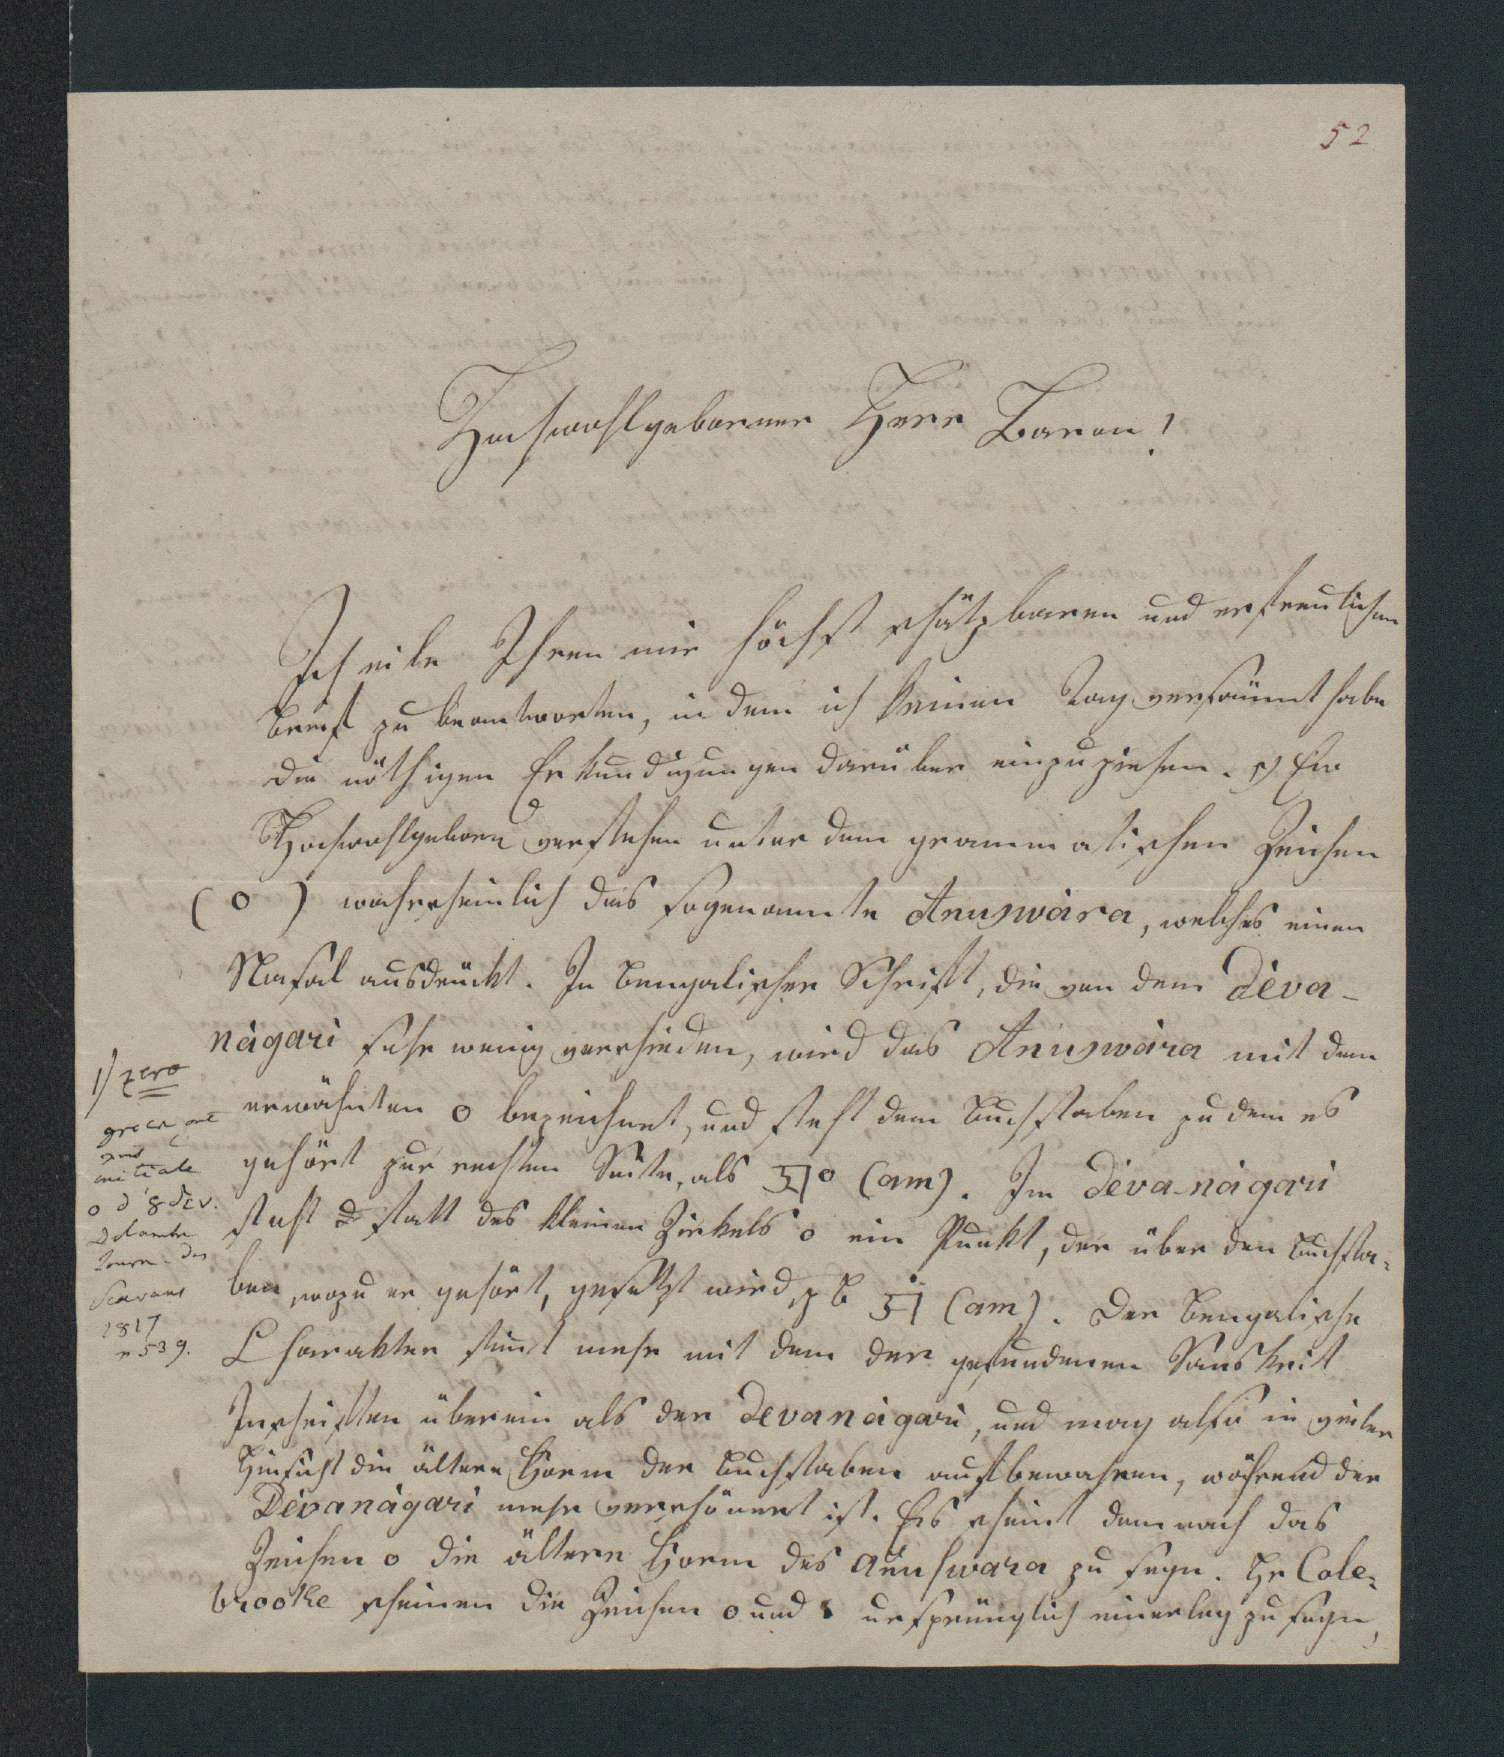 52
Hochwohlgeborner Herr Baron!
Ich eile Ihren mir höchst schätzbaren und erfreulichen
Brief zu beantworten, in dem ich keinen Tag versäumt habe
die nöthigen Erkundigungen darüber einzuziehen. Ew
Hochwohlgeboren verstehen unter dem grammatischen Zeichen
( o ) wahrscheinlich das sogenannte Anuswára, welches einen
Nasal ausdrückt. In bengalischer Schrift, die von dem Déva-
nágari sehr wenig verschieden, wird das Anuswára mit dem
erwähnten o bezeichnet, und steht dem Buchstaben zu dem es
gehört zur rechten Seite, als (am). Im Déva-nágari
steht statt des kleinen Zirkels o ein Punkt, der über den Buchsta-
ben, wozu er gehört, gesetzt wird, z B (am). Der bengalische
Charakter stimt mehr mit dem der gefundenen Sanskrit
Inschriften überein als der Devanágari, und mag also in vieler
Hinsicht die ältere Form der Buchstaben aufbewahren, während der
Dévanágari mehr verschönert ist. Es scheint demnach das
Zeichen o die ältere Form des Anuswara zu seyn. Hr Cole-
brooke scheinen die Zeichen o und ursprünglich einerley zu seyn,
1) zero
grecque
initiale
o d'
Delambre
Journ. des
Scavans
1817
p 539.